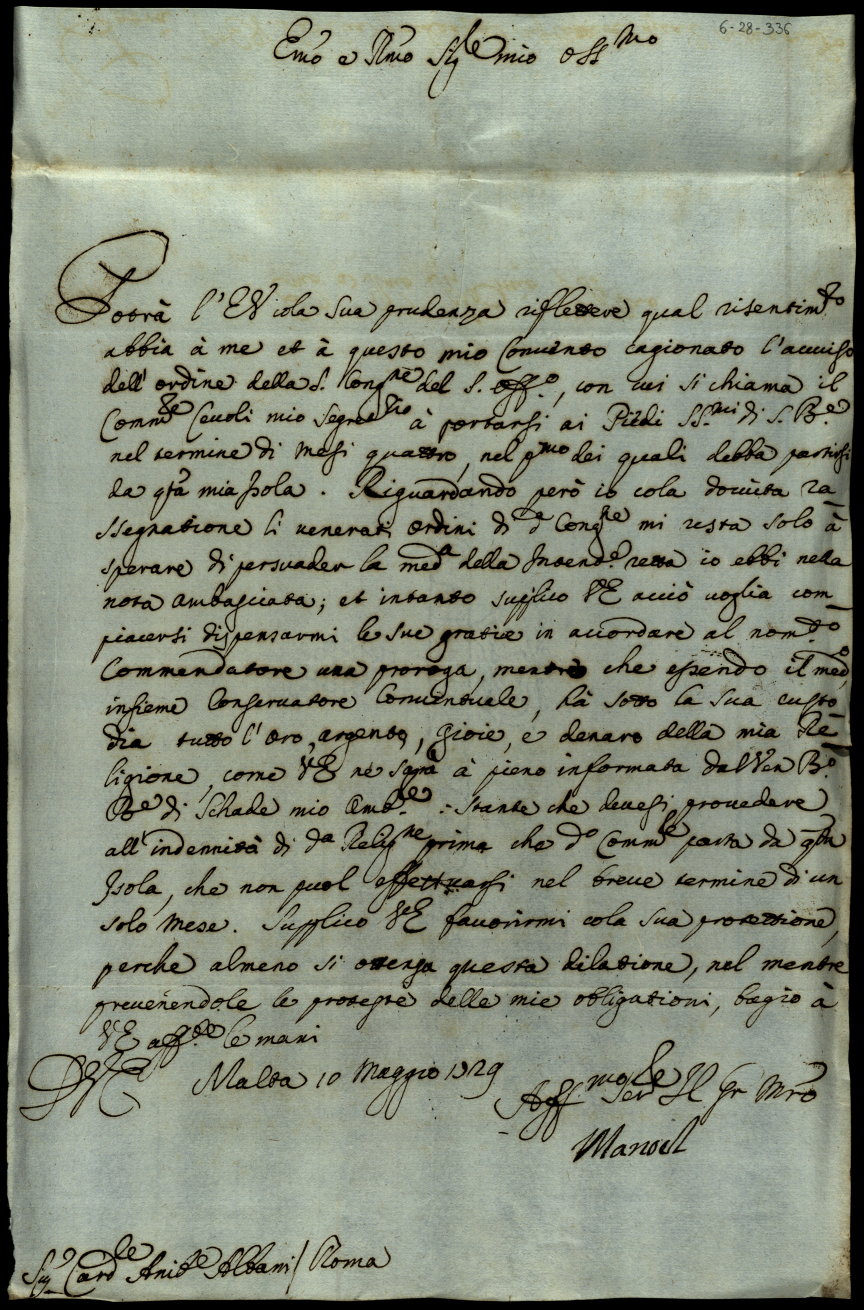 6-28-336
Emo e Rmo Sigre mio ossmo
Potrà l'EV cola sua prudenza riflettere qual risentimto
abbia à me et à questo mio Convento cagionato l'avviso
dell'ordine della S. Congne del S. Offo, con cui si chiama il
Commre Cevoli mio Segretrio à portarsi ai Piedi SSmi di S. Bne
nel termine di mesi quattro, nel pmo dei quali debba partirsi
da qta mia Isola. Riguardando però io cola dovuta ra
ssegnatione li venerati ordini di da Congne mi resta solo à
sperare di persuader la meda della Intendza retta io ebbi nella
nota ambasciata; et intanto supplico VE acciò voglia com
piacersi dispensarmi le sue gratie in accordare al nomto
Commendatore una proroga, mentre che essendo il medo
insieme Conservatore Conventuale, hà sotto la sua custo
dia tutto l'oro, argento, Gioie, e denaro della mia Re
ligione, come VE ne sarà à pieno informata dal Ven Bo
di Schade mio Ambre: Stante che devesi provedere
all'indennità di da Religne prima che do Commre parta da qta
Isola, che non puol effettuarsi nel breve termine di un
solo Mese. Supplico VE favorirmi cola sua protettione,
perche almeno si ottenga questa dilatione, nel mentre
prevenendole le proteste delle mie obligationi, bagio à
VE affte le mani
DVE Malta 10 Maggio 1729
Affmo Serre Il Gr Mro
Manoel
Sigr Cardle Anile Albani / Roma